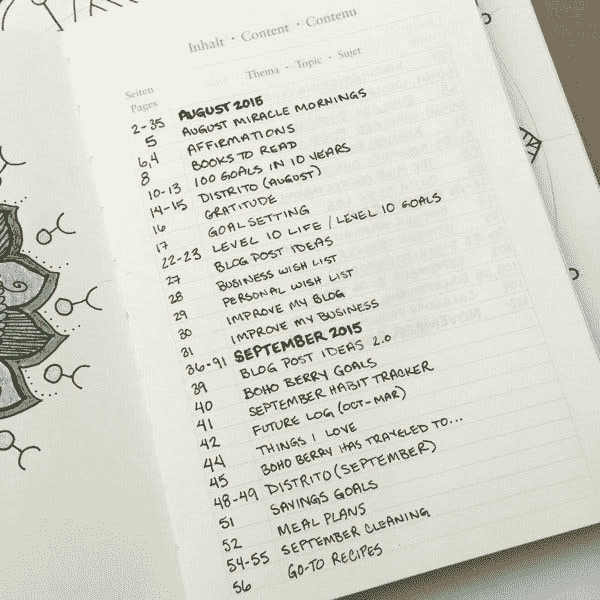 Inhalt · Content · Contenu
Seiten Thema · Topic · Sujet
Pages
2-35 AUGUST 2015
5 AUGUST MIRACLE MORNINGS
6,4 AFFIRMATIONS
8 BOOKS TO READ
10-13 100 GOALS IN 10 YEARS
14-15 DISTRITO (AUGUST)
16 GRATITUDE
17 GOAL SETTING
22-23 LEVEL 10 LIFE / LEVEL 10 GOALS
27 BLOG POST IDEAS
28 BUSINESS WISH LIST
29 PERSONAL WISH LIST
30 IMPROVE MY BLOG
31 IMPROVE MY BUSINESS
36-91 SEPTEMBER 2015
39 BLOG POST IDEAS 2.0
40 BOHO BERRY GOALS
41 SEPTEMBER HABIT TRACKER
42 FUTURE LOG (OCT-MAR)
44 THINGS I LOVE
45 BOHO BERRY HAS TRAVELED TO...
48-49 DISTRITO (SEPTEMBER)
51 SAVINGS GOALS
52 MEAL PLANS
54-55 SEPTEMBER CLEANING
56 GO-TO RECIPES